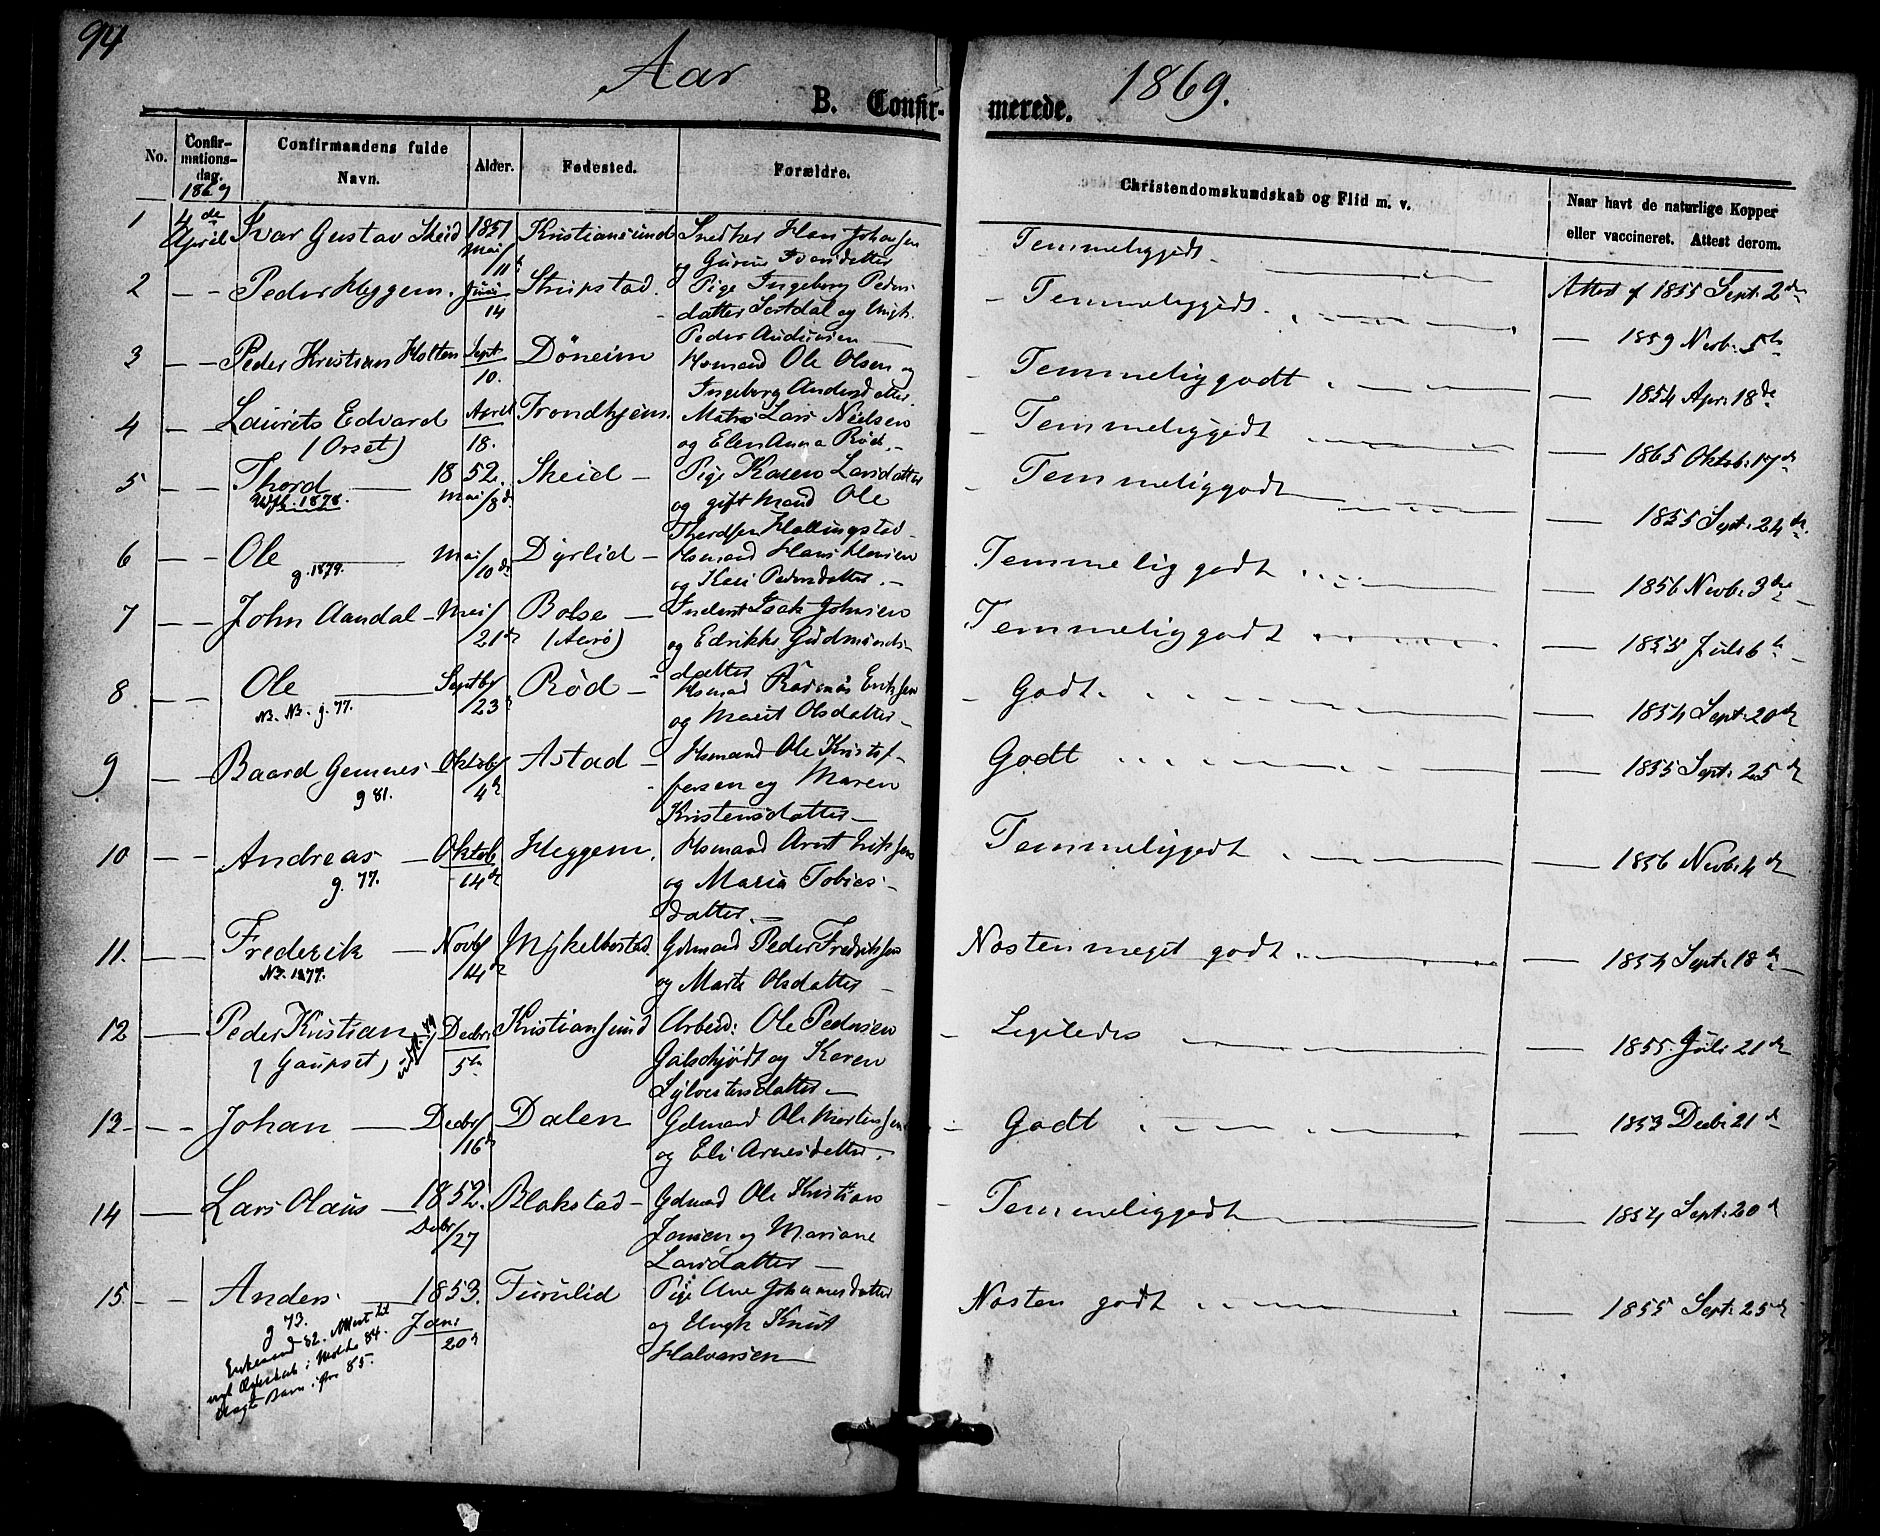 94
Aar 1869.
B. Confirmerede.
No.
Confirmationsdag. 1869
Confirmandens fulde Navn.
Alder.
Fødested.
Forældre.
Christendomskundskab og Flid m. v.
Naar havt de naturlige Kopper eller vaccineret. Attest derom.
1 4de April Ivar Gustav Skeid 1851 Mai/11 Kristiansund Snedker Hans Johansen Temmeliggodt Attest af 1855 Sept: 2den
og Gurine Iversdatter
2 — — Peder Heggem. Juni 14 Strupstad. Pige Ingeborg Peders- Temmeliggodt. — 1859 Novb: 5te
datter Sortdal og Ungk.
Peder Andersen —
3 — — Peder Kristian Holten Sept 10. Döneim Hsmand Ole Olsen og Temmeliggodt — 1854 Apr: 18de
Ingeborg Andersdatter
4 — — Laurits Edvard April 18. Trondhjem. Matros Lars Nielsen Temmeliggodt — 1865 Oktob: 17de
(Orset) og Elen Anna Rød. —
5 — — Thord — 1852. Mai/8de Skeid — Pige Karen Larsdatter Temmeliggodt — 1855 Sept: 24de
Utfl. 1878. og gift Mand Ole
Thordsen Hallingstad —
6 — — Ole — Mai/10de Dyrlid — Hsmand Hans Hansen Temmeliggodt — 1856 Novb: 3die
g. 1879. og Kari Pedersdatter. —
7 — — John Aandal — Mai/21de Bolsø — Inderst Isak Johnsen Temmeliggodt — 1853 Juli 6te
(Aarø) og Edrikke Gudmunds-
datter
8 — — Ole — Septbr/23de Rød — Hsmand Rasmus Eriksen Godt. — 1854 Sept: 20de
N. N. g. 77. og Marit Olsdatter —
9 — — Baard Gemnes — Oktobr/4de Astad — Hsmand Ole Kristof- Godt — 1855 Sept: 25de
g 81. fersen og Maren
Kristensdatter —
10 — — Andreas — Oktob 14de Heggem. Hsmand Arnt Eriksen Temmeliggodt — 1856 Novb: 4de
g. 77. og Maria Tobias-
datter —
11. — Frederik — Novb/14de Mykelbostad. Gdmand Peder Fredriksen Næsten meget godt — 1854 Sept: 18de
N. 1877. og Marit Olsdatter —
12 — Peder Kristian Decbr: 5te Kristiansund Arbeid: Ole Pedersen Ligeledes — 1855 Juli 21de
(Gaupset) Galskjødt og Karen
Sylvestersdatter —
13 — — Johan — Decbr/16de Dalen Gdmand Ole Mortensen Godt — 1853 Decb: 21de
og Eli Arnesdatter.
14 — Lars Olaus — 1852. Decbr/27 Blakstad — Gdmand Ole Kristian Temmeliggodt — 1854 Sept: 20de
Jansen og Mariane
Larsdatter —
15 — — Anders — 1853. Jan: 20de Furulid Pige Ane Johannesdatter Næsten godt — 1855 Sept: 25de
g 73. og Ungk Knut
Enkemand 82. Attest til Halvorsen —
nyt Ægteskab i Molde 84.
85.